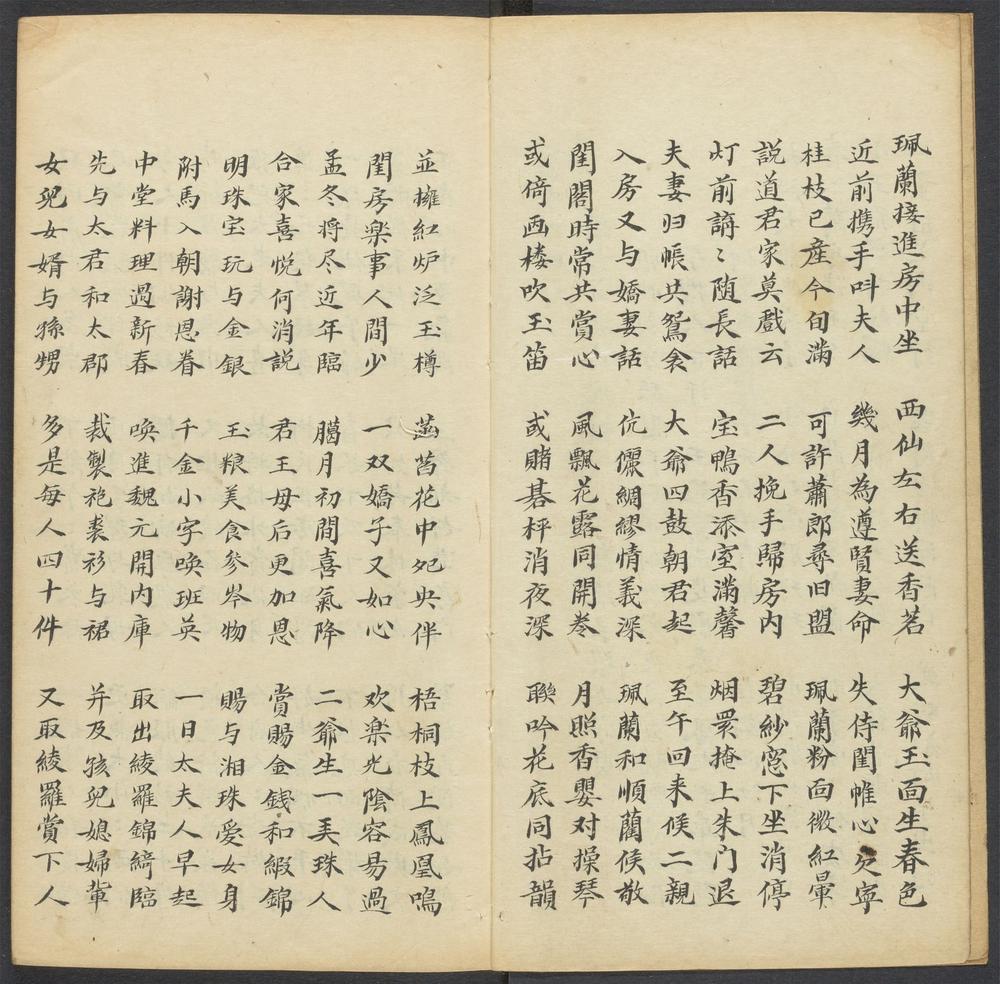 珮蘭接進房中坐 西仙左右送香茗 大爺玉面生春色
近前携手呌夫人 幾月為遵賢妻命 失侍閨帷心欠寧
桂枝已產今旬滿 可許蕭郎尋旧盟 珮蘭粉面微紅暈
説道君家莫戲云 二人挽手歸房内 碧紗窓下坐消停
灯前講〻随長話 宝鴨香添室滿馨 烟罳掩上朱门退
夫妻归帳共鴛衾 大爺四鼓朝君起 至午回来候二親
入房又与嬌妻話 伉儷綢繆情義深 珮蘭和順蘭候敬
閨閣時常共賞心 風飄花露同開卷 月照香嬰对操琴
或倚画楼吹玉笛 或賭碁枰消夜深 聯吟花底同拈韻
並擁紅炉泛玉樽 菡萏花中夗央伴 梧桐枝上鳳凰鳴
閨房楽事人間少 一双嬌子又如心 欢楽光陰容易過
孟冬将尽近年臨 臈月初間喜氣降 二爺生一美珠人
合家喜悦何消説 君王母后更加恩 賞賜金銭和緞錦
明珠宝玩与金銀 玉粮美食参岑物 賜与湘珠愛女身
附馬入朝謝恩眷 千金小字唤班英 一日太夫人早起
中堂料理過新春 唤進魏元開内庫 取出綾羅錦綺臨
先与太君和太郡 裁製袍裘衫与裙 并及孩兒媳婦輩
女兒女婿与孫甥 多是每人四十件 又取綾羅賞下人